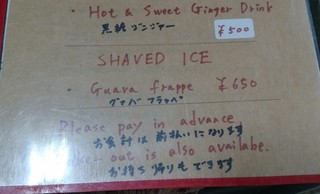 ・ Hot & Sweet Ginger Drink
黒糖ジンジャー ¥500
SHAVED ICE
・ Guava frappe ¥650
グァバフラッペ
Please pay in advance
お会計は前払いになります
Take-out is also availabe.
お持ち帰りもできます